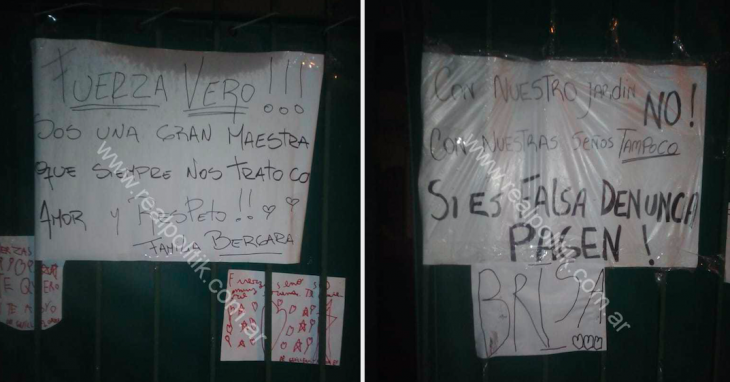 FUERZA VERO!!!
SOS UNA GRAN MAESTRA
QUE SIEMPRE NOS TRATO CO
AMOR Y RESPETO!!
FAMILIA BERGARA
www.realpolitik.com.ar
CON NUESTRO JARDIN NO!
CON NUESTRAS SEÑOS TAMPOCO
SI ES FALSA DENUNCA
PAGEN!
BRISA
www.realpolitik.com.ar